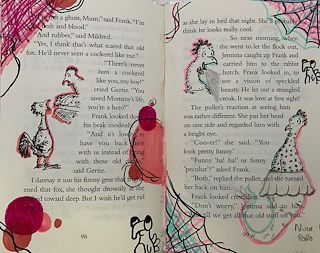 not a ghost, Mum," said Frank. "I'm
flesh and blood."
"And rubber," said Mildred.
"Yes, I think that's what scared that old
fox. He'd never seen a cockerel like me."
"There's never
been a cockerel
like you, my boy!"
cried Gertie. "You
saved Mummy's life,
you're a hero!"
Frank looked do
his beak modestly.
"And it's love
have you back
with us instead of
with those old
said Gertie.
I daresay it was his funny gear that
ened that fox, she thought drowsily as she
toward sleep. But I wish he'd get rid
96
as she lay in bed that night. She'll
think he looks really cool.
So next morning, when
she went to let the flock out,
Jemima caught up Frank and
carried him to the rabbit
hutch. Frank looked in, to
see a vision of speckled
beauty. He let out a strangled
croak. It was love at first sight!
The pullet's reaction at seeing him
was rather different. She put her head
on one side and regarded him with
a bright eye.
"Coo-er!" she said. "You
look pretty funny."
"Funny 'ha, ha!' or funny
'peculiar'?" asked Frank.
"Both," replied the pullet, and she turned
her back on him.
Frank looked
"Don't worry," Jemima said to
till we get all that old stuff off you."
Nina